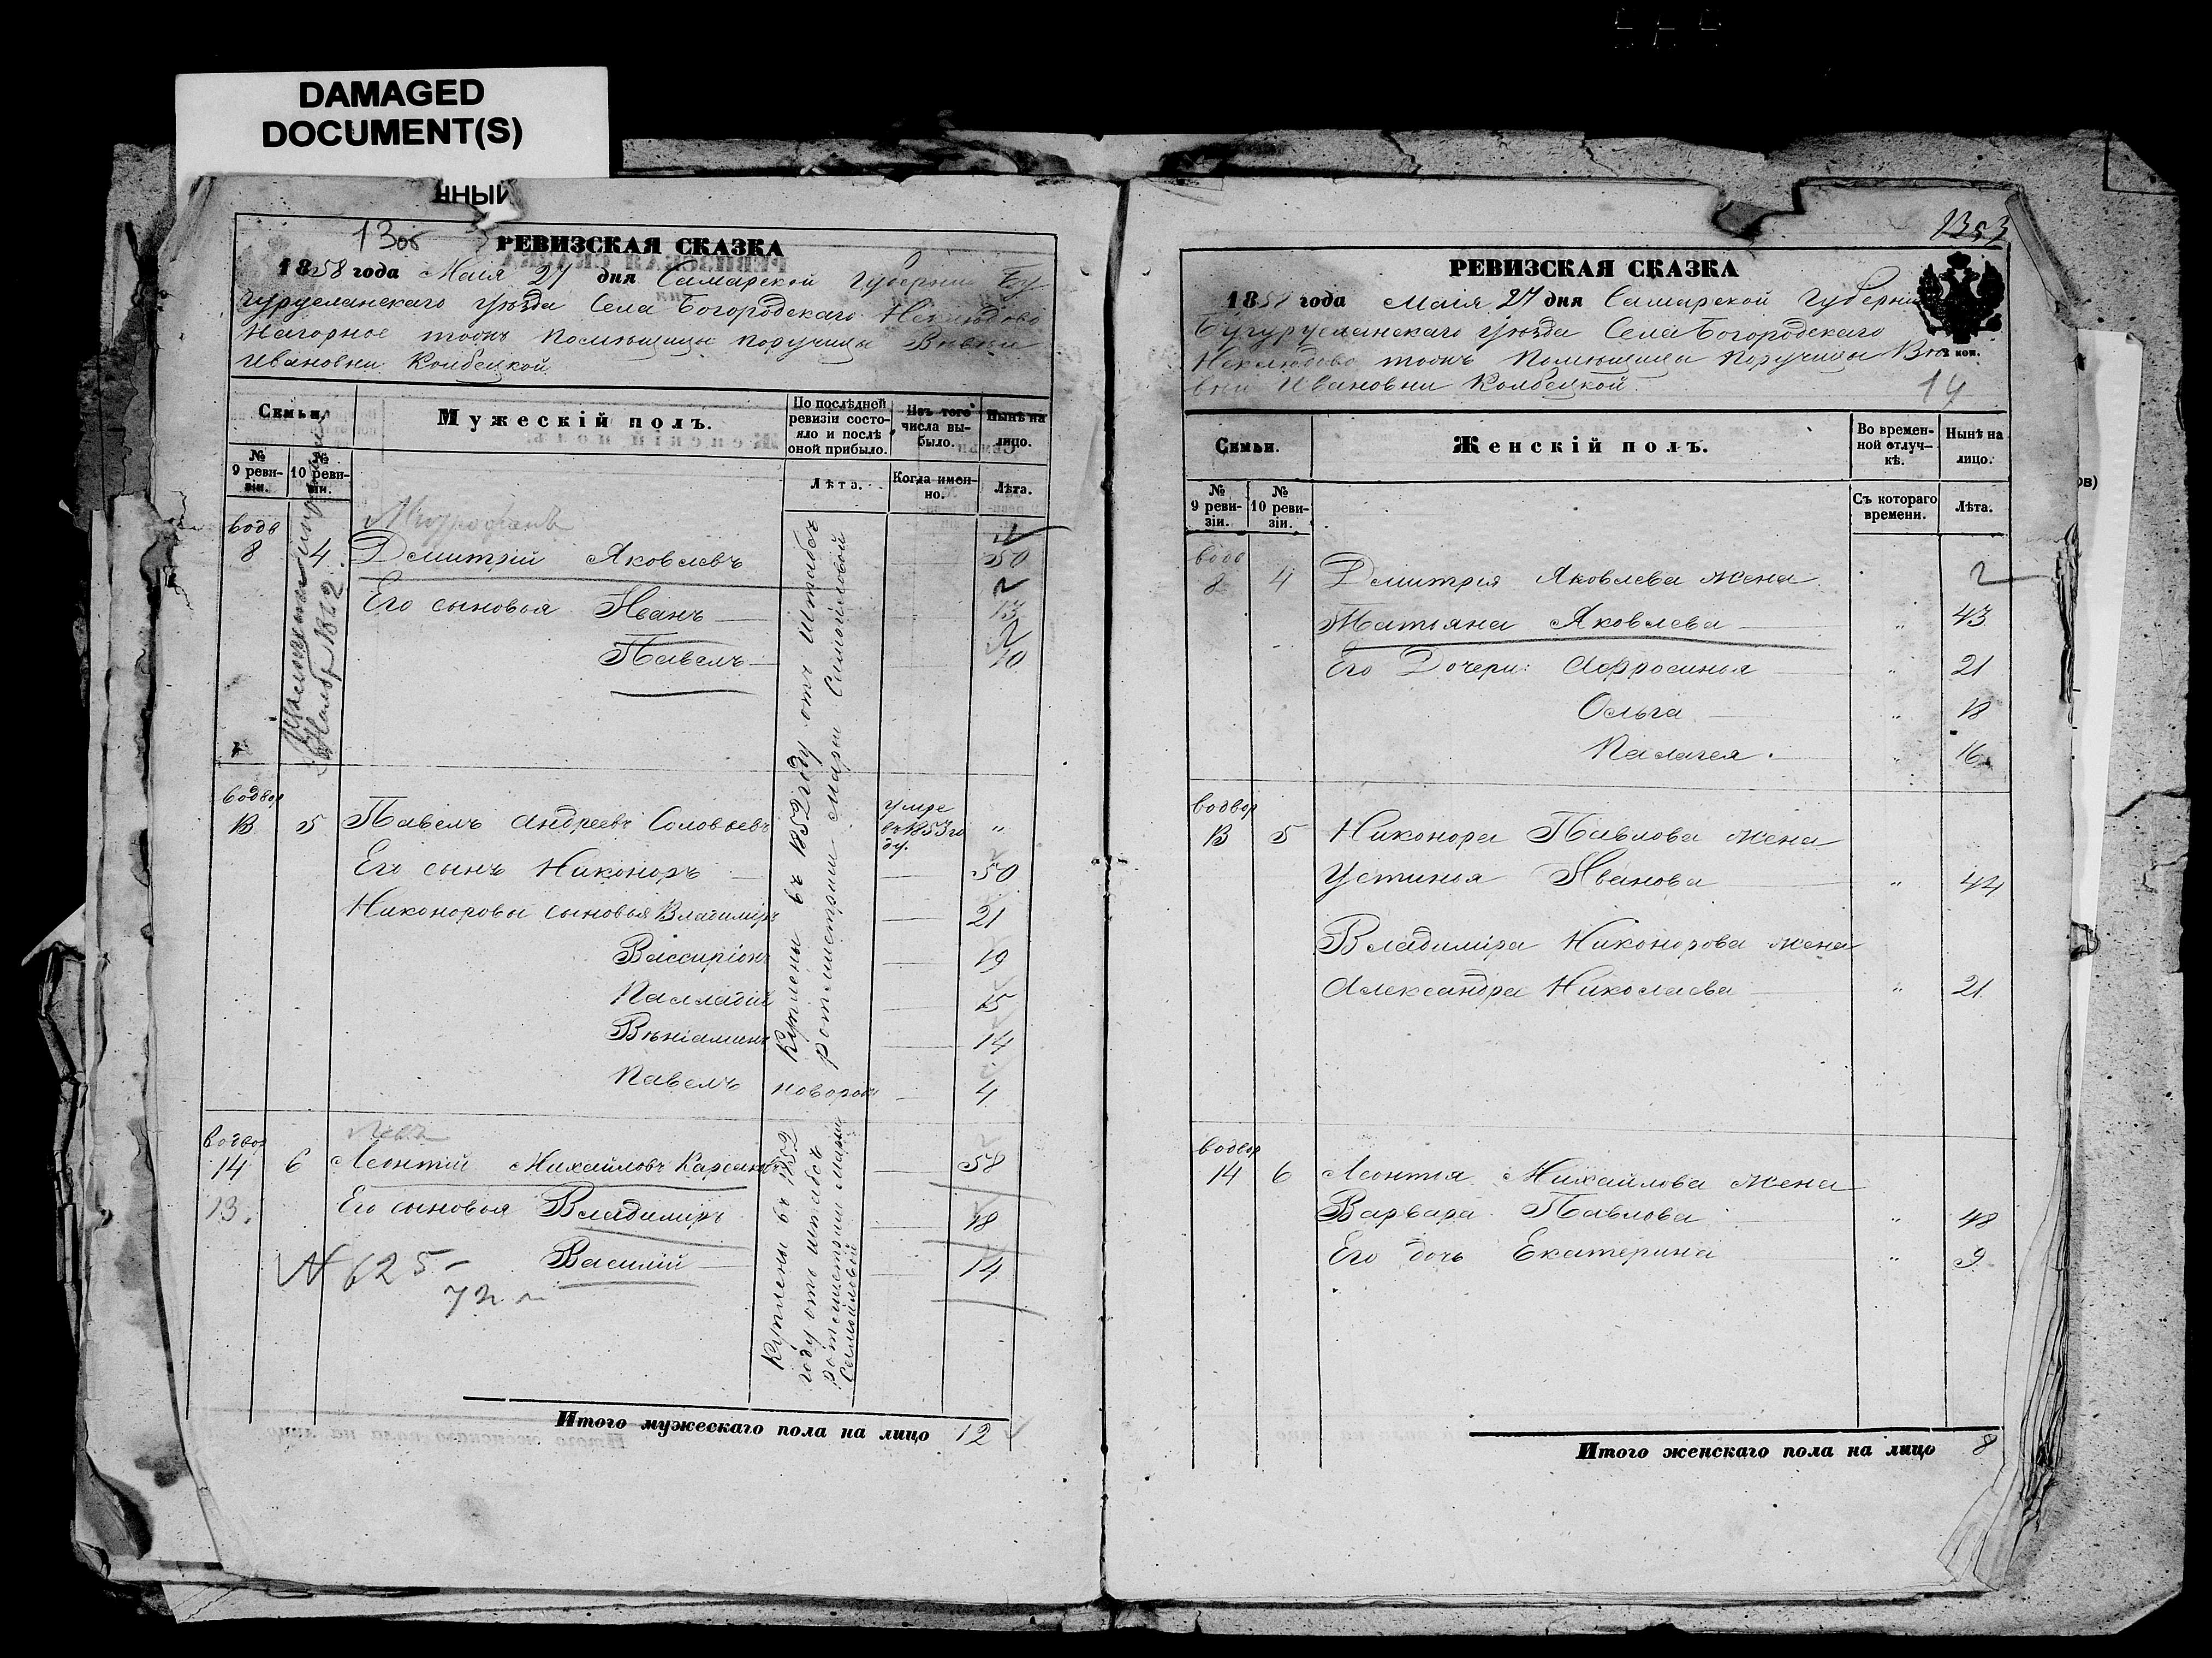 DAMAGED
DOCUMENT(S)
нный
РЕВИЗСКАЯ СКАЗКА
1858 года Маія 27 дня Самарской Губерніи Бу
гурусланскаго уѣзда Села Богородскаго Неклюдово
Нагорное тожъ Помѣщицы Поручицы
Ивановны
Семьи.
Мужескій полъ.
По послѣдней ревизіи состояло и послѣ оной прибыло.
Изъ того числа выбыло.
Нынѣ на лицо.
№ 9 ревизіи.
№ 10 ревизіи.
Лѣта.
Когда именно.
Лѣта.
8 4 Дмитрій Яковлевъ 50
Его сыновья Иванъ 13
Павелъ 10
1862
Куплены въ 1852 году отъ Штабсъ
ротмистрши Марьи Самойловой
водвор
13 5 Павелъ Андреевъ Соловьевъ умре въ 1853 го ду. "
Его сынъ Никоноръ 50
Никоноровы сыновья Владиміръ 21
19
Палладій 15
Веніаминъ 14
Павелъ новорож 4
водвор
14 6 Леонтій Михайловъ 58
13. Его сыновья Владиміръ 18
Василій 14
№ 625
Куплены въ 1852
году отъ штабсъ
ротмистрши Марьи
Самойловой
Итого мужескаго пола на лицо 12
1353
РЕВИЗСКАЯ СКАЗКА
1858 года Маія 27 дня Самарской Губерніи
Бугурусланскаго уѣзда Села Богородскаго
Неклюдово тожъ Помѣщицы Поручицы
Ивановны
коп.
14
Семьи.
Женскій полъ.
Во временной отлучкѣ.
Нынѣ на лицо.
№ 9 ревизіи.
№ 10 ревизіи.
Съ котораго времени.
Лѣта.
8 4 Дмитрія Яковлева жена 2
Татьяна Яковлева " 43
Его Дочери: Афросинья " 21
Ольга " 18
Палагея " 16
водвор
13 5 Никонора Павлова жена
Устинья Иванова " 44
Владиміра Никонорова жена
Александра Николаева " 21
водвор
14 6 Леонтія Михайлова жена
Варвара Павлова " 48
Его дочь Екатерина " 9
Итого женскаго пола на лицо 8
ов)